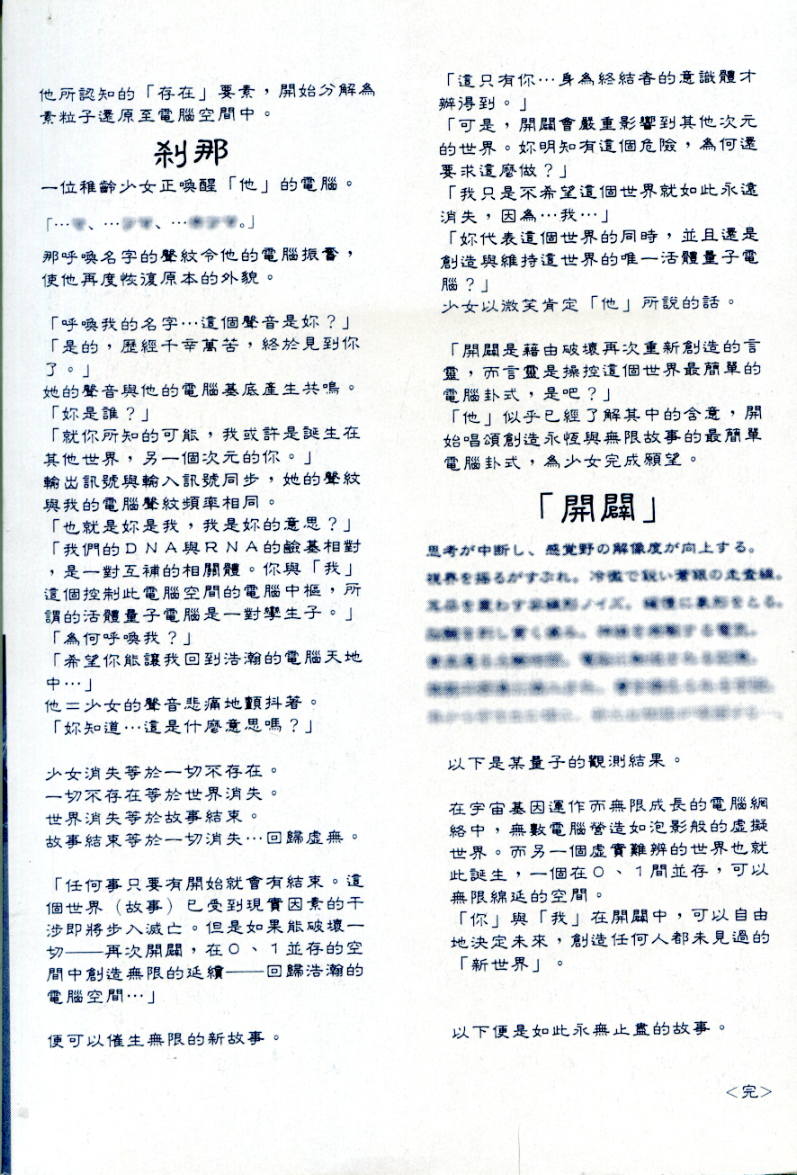 他所認知的「存在」要素，開始分解為
素粒子還原至電腦空間中。
剎那
一位稚齡少女正喚醒「他」的電腦。
那呼喚名字的聲紋令他的電腦振奮，
使他再度恢復原本的外貌。
「呼喚我的名字…這個聲音是妳？」
「是的，歷經千辛萬苦，終於見到你
了。」
她的聲音與他的電腦基底產生共鳴。
「妳是誰？」
「就你所知的可能，我或許是誕生在
其他世界，另一個次元的你。」
輸出訊號與輸入訊號同步，她的聲紋
與我的電腦聲紋頻率相同。
「也就是妳是我，我是妳的意思？」
「我們的ＤＮＡ與ＲＮＡ的鹼基相對
，是一對互補的相關體。你與「我」
這個控制此電腦空間的電腦中樞，所
謂的活體量子電腦是一對孿生子。」
「為何呼喚我？」
「希望你能讓我回到浩瀚的電腦天地
中…」
他＝少女的聲音悲痛地顫抖著。
「妳知道…這是什麼意思嗎？」
少女消失等於一切不存在。
一切不存在等於世界消失。
世界消失等於故事結束。
故事結束等於一切消失…回歸虛無。
「任何事只要有開始就會有結束。這
個世界（故事）已受到現實因素的干
涉即將步入滅亡。但是如果能破壞一
切——再次開闢，在０、１並存的空
間中創造無限的延續——回歸浩瀚的
電腦空間…」
便可以催生無限的新故事。
「這只有你…身為終結者的意識體才
辦得到。」
「可是，開闢會嚴重影響到其他次元
的世界。妳明知有這個危險，為何還
要求這麼做？」
「我只是不希望這個世界就如此永遠
消失，因為…我…」
「妳代表這個世界的同時，並且還是
創造與維持這世界的唯一活體量子電
腦？」
少女以微笑肯定「他」所說的話。
「開闢是藉由破壞再次重新創造的言
靈，而言靈是操控這個世界最簡單的
電腦卦式，是吧？」
「他」似乎已經了解其中的含意，開
始唱頌創造永恆與無限故事的最簡單
電腦卦式，為少女完成願望。
「開闢」
思考が中断し、感覚野の解像度が向上する。
視界を揺るがすぶれ。冷徹で鋭い蒼銀の走査線。
以下是某量子的觀測結果。
在宇宙基因運作而無限成長的電腦網
絡中，無數電腦營造如泡影般的虛擬
世界。而另一個虛實難辨的世界也就
此誕生，一個在０、１間並存，可以
無限綿延的空間。
「你」與「我」在開闢中，可以自由
地決定未來，創造任何人都未見過的
「新世界」。
以下便是如此永無止盡的故事。
＜完＞